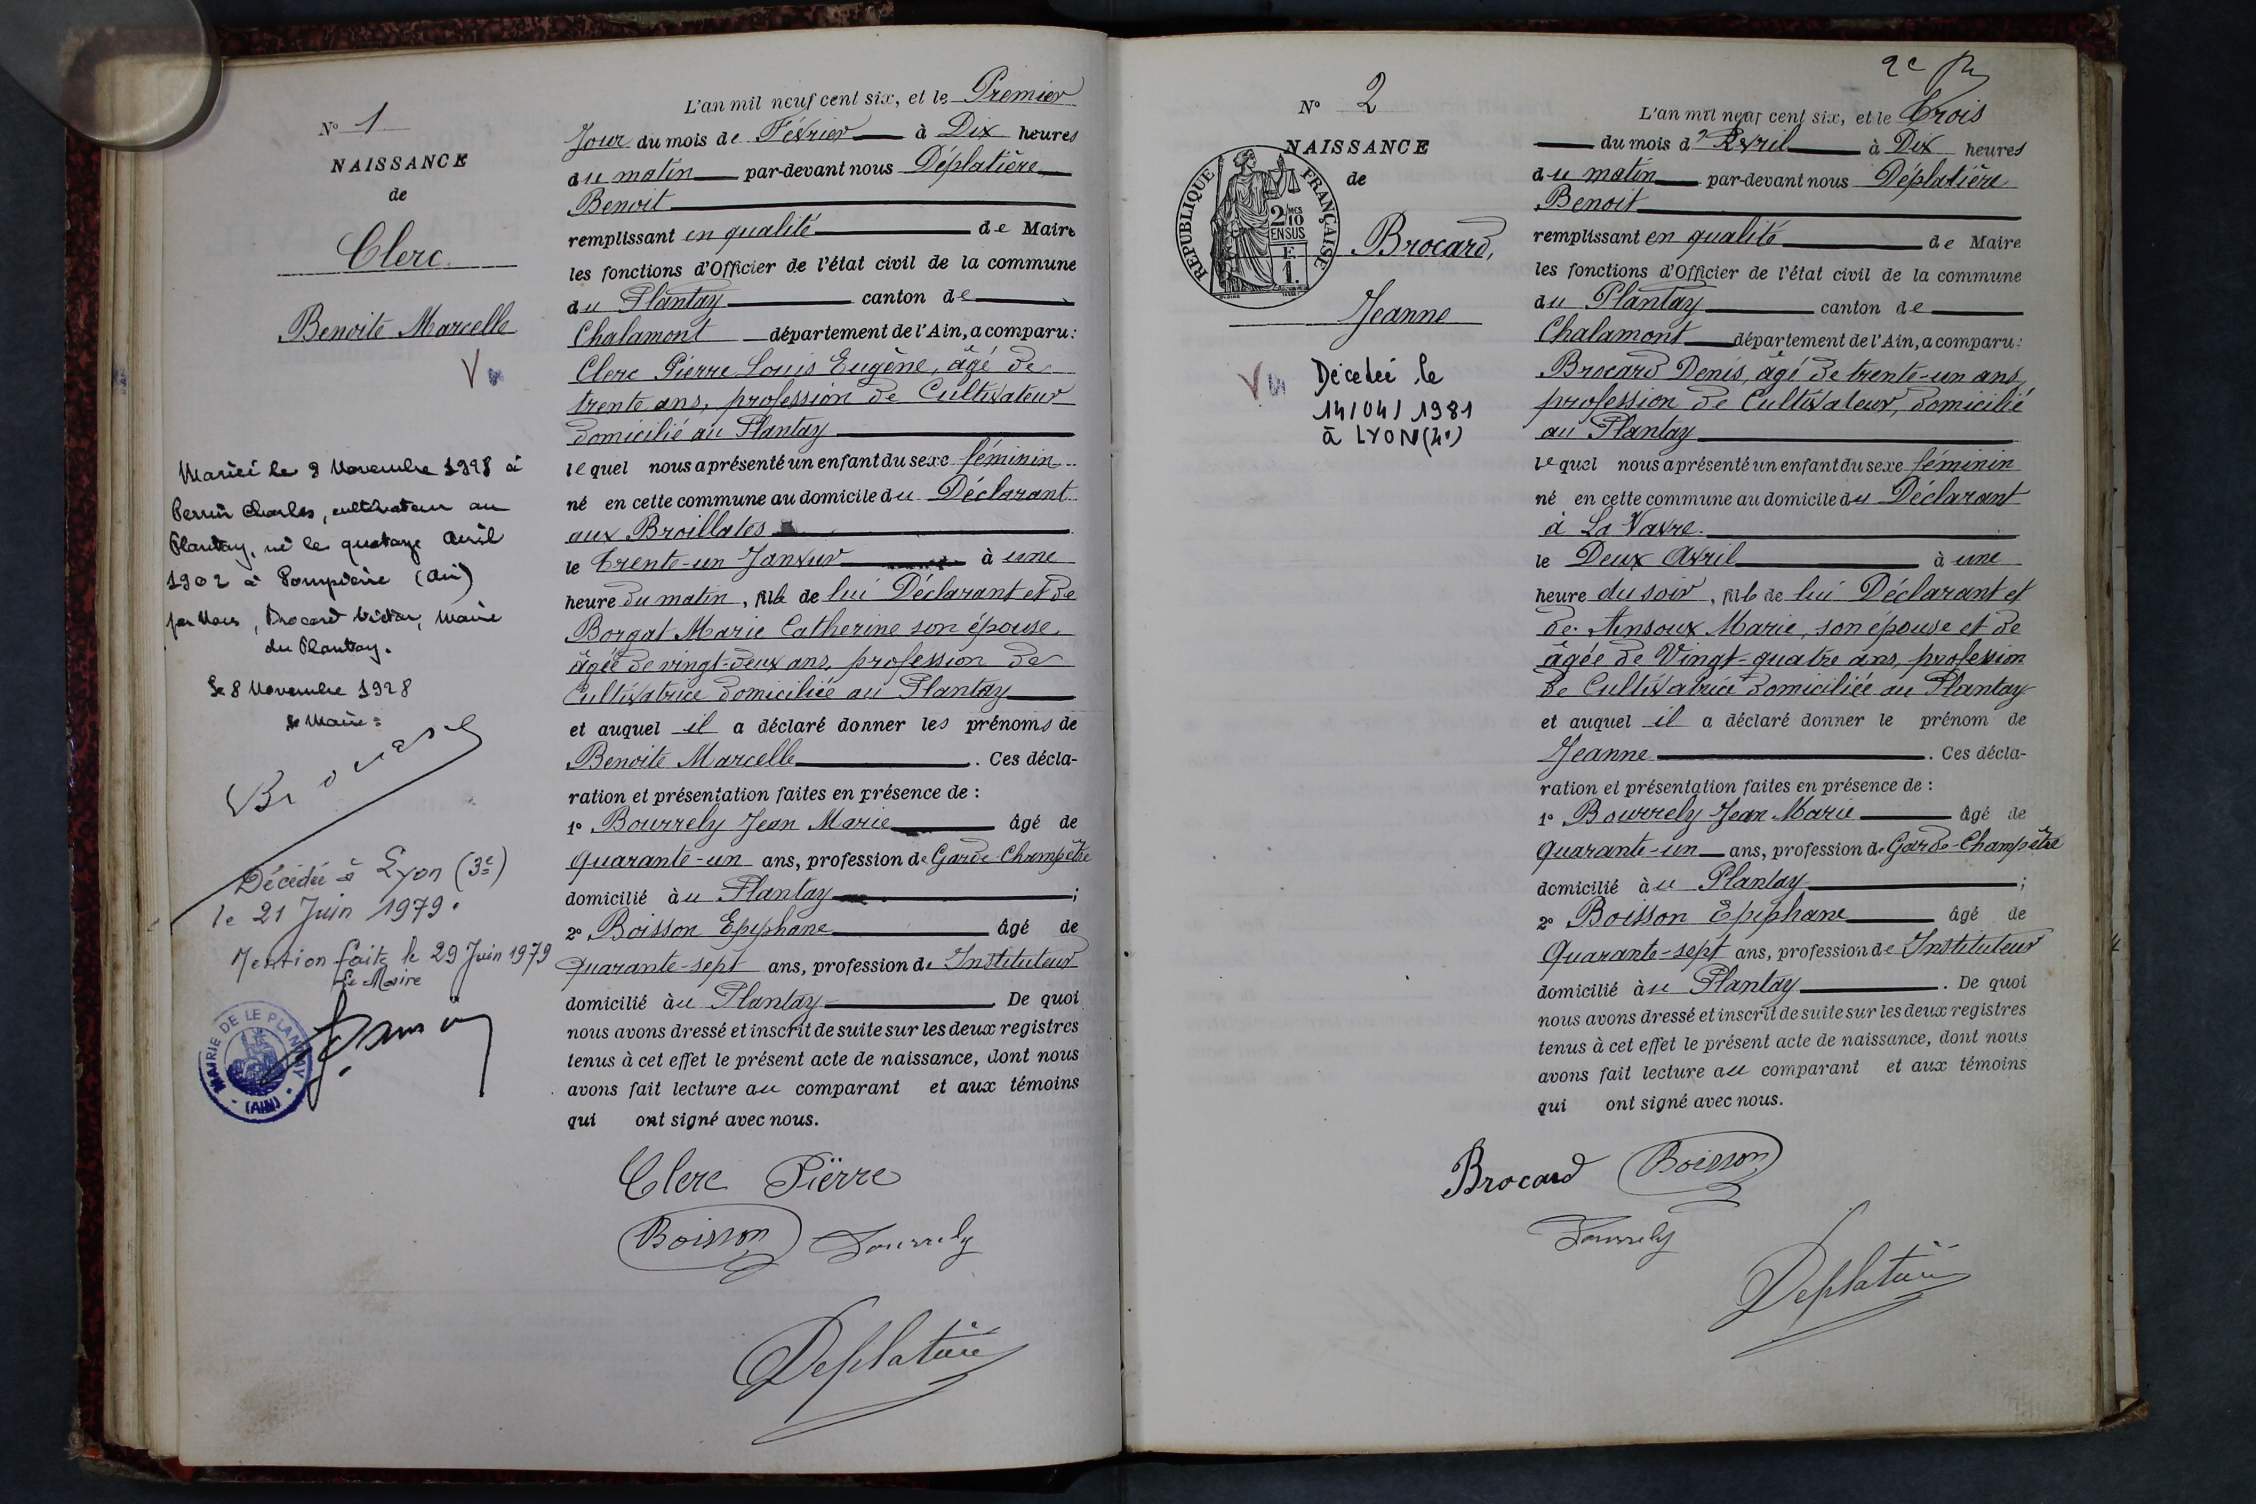 N° 1
NAISSANCE
de
Clerc
Benoite Marcelle
Mariée le 8 Novembre 1928 à
Perrin Charles, cultivateur au
Plantay, né le quatorze avril
1902 à (Ain)
par Nous, Brocard Victor, Maire
du Plantay.
Le 8 Novembre 1928
Le Maire :
Décédée à Lyon (3e)
le 21 Juin 1979.
Mention faite le 29 Juin 1979
Le Maire
MAIRIE DE LE PLANTAY
(AIN)
L'an mil neuf cent six, et le Premier
Jour du mois de Février à Dix heures
du matin par-devant nous Déplatière
Benoit
remplissant en qualité de Maire
les fonctions d'Officier de l'état civil de la commune
du Plantay canton de
Chalamont département de l'Ain, a comparu :
Clerc Pierre Louis Eugène, âgé de
trente ans, profession de Cultivateur
domicilié au Plantay
lequel nous a présenté un enfant du sexe féminin
né en cette commune au domicile du Déclarant
aux Broillates
le trente-un Janvier à une
heure du matin, fille de lui Déclarant et de
Borgat Marie Catherine son épouse,
âgée de vingt-deux ans, profession de
Cultivatrice domiciliée au Plantay
et auquel il a déclaré donner les prénoms de
Benoite Marcelle. Ces décla-
ration et présentation faites en présence de :
1° Bourrely Jean Marie âgé de
quarante-un ans, profession de Garde-Champêtre
domicilié au Plantay ;
2° Boisson Epiphane âgé de
quarante-sept ans, profession de Instituteur
domicilié au Plantay. De quoi
nous avons dressé et inscrit de suite sur les deux registres
tenus à cet effet le présent acte de naissance, dont nous
avons fait lecture au comparant et aux témoins
qui ont signé avec nous.
Clerc Pierre
Boisson Bourrely
Déplatière
2e
N° 2
NAISSANCE
de
RÉPUBLIQUE FRANÇAISE
2/10 MES
EN SUS
F
1.
Brocard,
Jeanne
Décédée le
14/04/1981
à LYON (4e)
L'an mil neuf cent six, et le Trois
du mois d'Avril à Dix heures
du matin par-devant nous Déplatière
Benoit
remplissant en qualité de Maire
les fonctions d'Officier de l'état civil de la commune
du Plantay canton de
Chalamont département de l'Ain, a comparu :
Brocard Denis, âgé de trente-un ans,
profession de Cultivateur, domicilié
au Plantay
lequel nous a présenté un enfant du sexe féminin
né en cette commune au domicile du Déclarant
à La Vavre.
le Deux Avril à une
heure du soir, fille de lui Déclarant et
de Ansoux Marie, son épouse et de
âgée de Vingt-quatre ans, profession
de Cultivatrice domiciliée au Plantay
et auquel il a déclaré donner le prénom de
Jeanne. Ces décla-
ration et présentation faites en présence de :
1° Bourrely Jean Marie âgé de
quarante-un ans, profession de Garde-Champêtre
domicilié au Plantay ;
2° Boisson Epiphane âgé de
Quarante-sept ans, profession de Instituteur
domicilié au Plantay. De quoi
nous avons dressé et inscrit de suite sur les deux registres
tenus à cet effet le présent acte de naissance, dont nous
avons fait lecture au comparant et aux témoins
qui ont signé avec nous.
Brocard Boisson
Bourrely
Déplatière